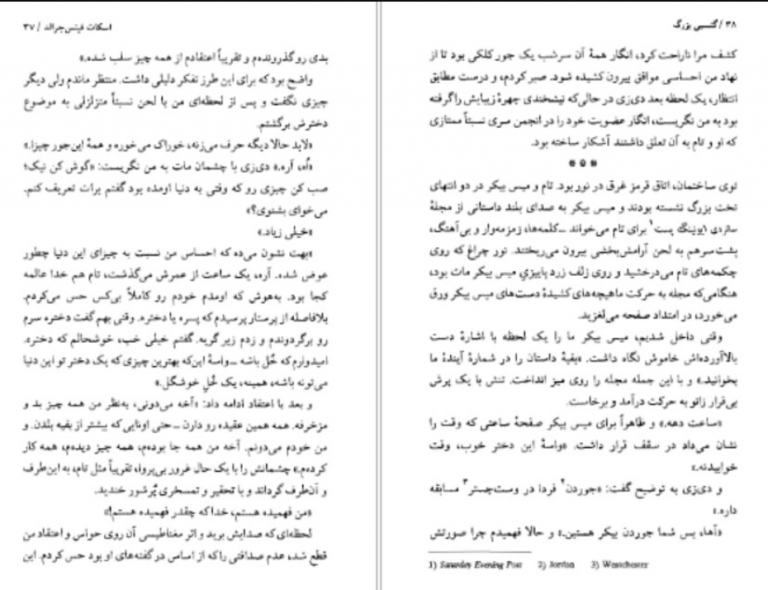 اسکات فیتس جرالد / ۳۷
بدی رو گذرونده‌م و تقریباً اعتقادم از همه چیز سلب شده.»
واضح بود که برای این طرز تفکر دلیلی داشت. منتظر ماندم ولی دیگر
چیزی نگفت و پس از لحظه‌ای من با لحن نسبتاً متزلزلی به موضوع
دخترش برگشتم.
«لابد حالا دیگه حرف می‌زنه، خوراک می‌خوره و همهٔ این‌جور چیزا.»
«اُه، آره.» دی‌زی با چشمان مات به من نگریست: «گوش کن نیک؛
صب کن چیزی رو که وقتی به دنیا اومده بود گفتم برات تعریف کنم.
می‌خوای بشنوی؟»
«خیلی زیاد.»
«بهت نشون می‌ده که احساس من نسبت به چیزای این دنیا چطور
عوض شده. آره، یک ساعت از عمرش می‌گذشت، تام هم خدا عالمه
کجا بود. به‌هوش که اومدم خودم رو کاملاً بی‌کس حس می‌کردم.
بلافاصله از پرستار پرسیدم که پسره یا دختره. وقتی بهم گفت دختره سرم
رو برگردوندم و زدم زیر گریه. گفتم خیلی خب، خوشحالم که دختره.
امیدوارم که خُل باشه ـ واسهٔ این‌که بهترین چیزی که یک دختر تو این دنیا
می‌تونه باشه، همینه، یک خُلِ خوشگل.»
و بعد با اعتقاد ادامه داد: «آخه می‌دونی، به‌نظر من همه چیز بد و
مزخرفه. همه همین عقیده رو دارن ـ حتی اونایی که بیشتر از بقیه بلدن. و
من خودم می‌دونم. آخه من همه جا بوده‌م، همه چیز دیده‌م، همه کار
کرده‌م.» چشمانش را با یک حال غرور بی‌پروا، تقریباً مثل تام، به این‌طرف
و آن‌طرف گرداند و با تحقیر و تمسخری پُرشور خندید.
«من فهمیده هستم، خدا که چقدر فهمیده هستم!»
لحظه‌ای که صدایش برید و اثر مغناطیسی آن روی حواس و اعتقاد من
قطع شد، عدم صداقتی را که از اساس در گفته‌های او بود حس کردم. این
۳۸ / گتسبی بزرگ
کشف مرا ناراحت کرد، انگار همهٔ آن سرشب یک جور کلکی بود تا از
نهاد من احساسی موافق بیرون کشیده شود. صبر کردم، و درست مطابق
انتظار، یک لحظه بعد دی‌زی در حالی‌که نیشخندی چهرهٔ زیبایش را گرفته
بود به من نگریست، انگار عضویت خود را در انجمن سری نسبتاً ممتازی
که او و تام به آن تعلق داشتند آشکار ساخته بود.
* * *
توی ساختمان، اتاق قرمز غرق در نور بود. تام و میس بیکر در دو انتهای
تخت بزرگ نشسته بودند و میس بیکر به صدای بلند داستانی از مجلهٔ
ساتردی ایونینگ پست۱ برای تام می‌خواند ـ کلمه‌ها، زمزمه‌وار و بی‌آهنگ،
پشت‌سرهم به لحن آرامش‌بخشی بیرون می‌ریختند. نور چراغ که روی
چکمه‌های تام می‌درخشید و روی زلف زرد پاییزیِ میس بیکر مات بود،
هنگامی‌که مجله به حرکت ماهیچه‌های کشیدهٔ دست‌های میس بیکر ورق
می‌خورد، در امتداد صفحه می‌لغزید.
وقتی داخل شدیم، میس بیکر ما را یک لحظه با اشارهٔ دست
بالاآورده‌اش خاموش نگاه داشت. «بقیهٔ داستان را در شمارهٔ آیندهٔ ما
بخوانید.» و با این جمله مجله را روی میز انداخت. تنش با یک پرش
بی‌قرار زانو به حرکت درآمد و برخاست.
«ساعت دهه.» و ظاهراً برای میس بیکر صفحهٔ ساعتی که وقت را
نشان می‌داد در سقف قرار داشت. «واسهٔ این دختر خوب، وقت
خوابیدنه.»
و دی‌زی به توضیح گفت: «جوردن۲ فردا در وست‌چستر۳ مسابقه
داره.»
«آها، پس شما جوردن بیکر هستین.» و حالا فهمیدم چرا صورتش
1) Saturday Evening Post 2) Jordan 3) Westchester